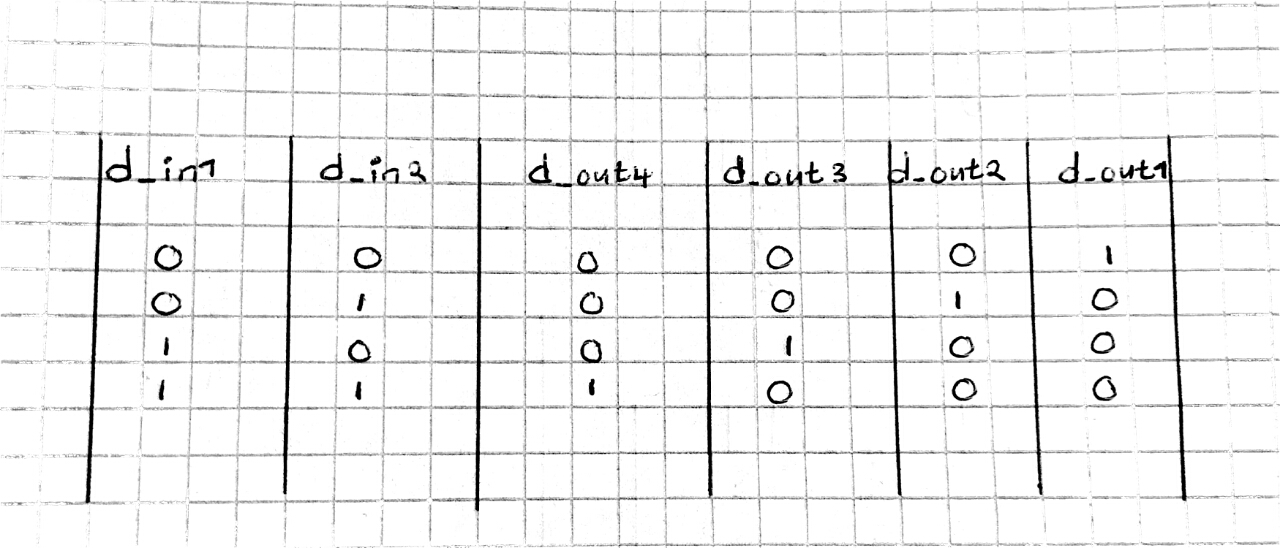 d_in1 d_in2 d_out4 d_out3 d_out2 d_out1
0 0 0 0 0 1
0 1 0 0 1 0
1 0 0 1 0 0
1 1 1 0 0 0